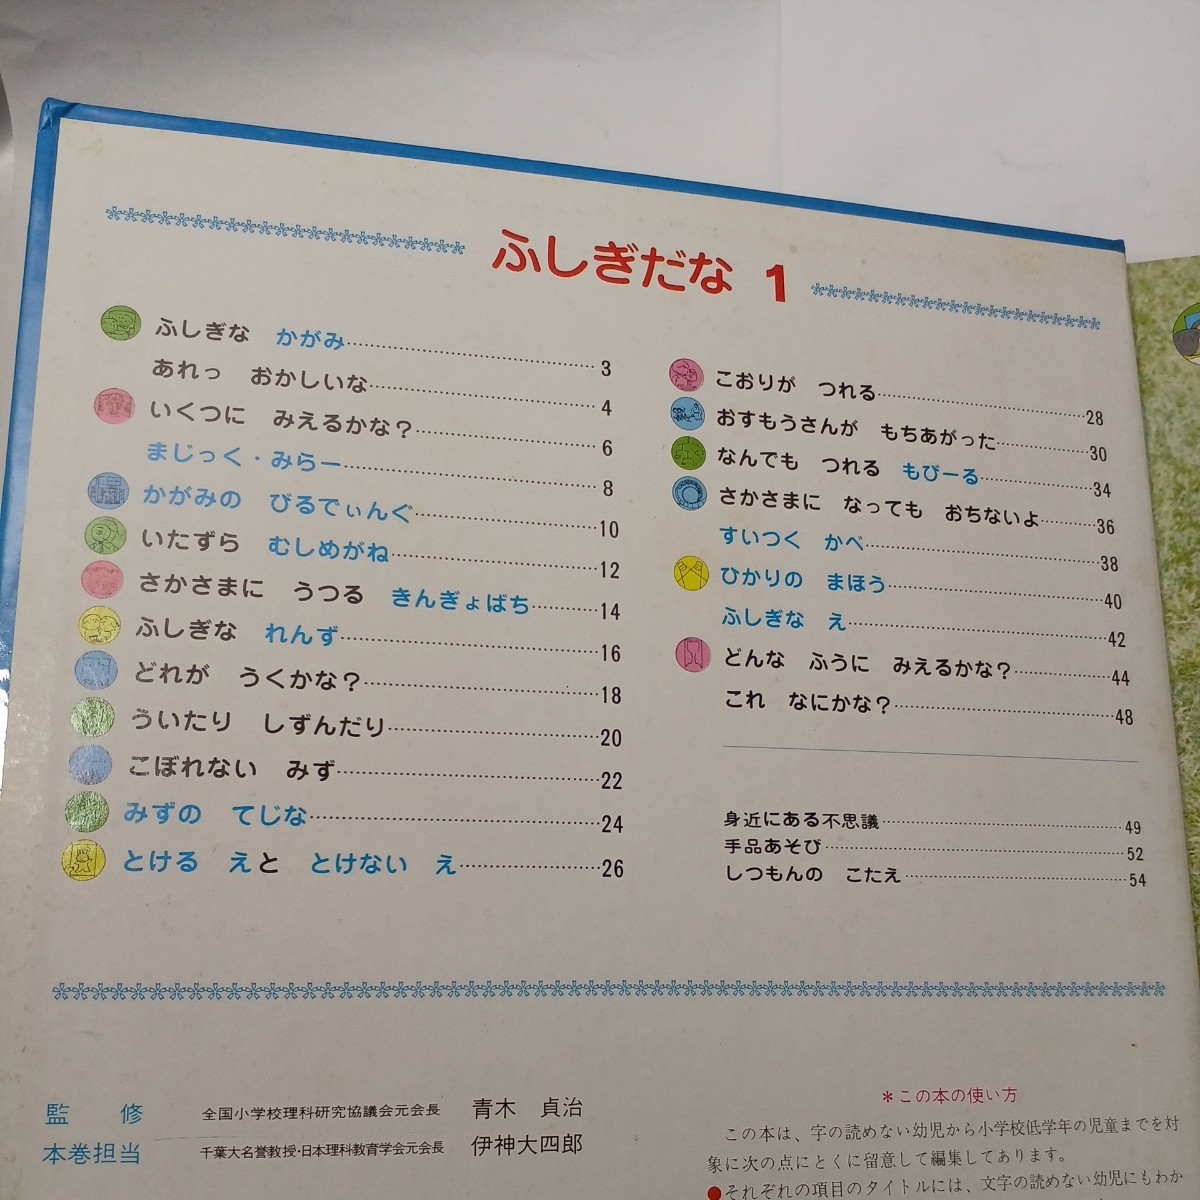 ふしぎだな 1
ふしぎな かがみ 3
あれっ おかしいな 4
いくつに みえるかな? 6
まじっく・みらー 8
かがみの びるでぃんぐ 10
いたずら むしめがね 12
さかさまに うつる きんぎょばち 14
ふしぎな れんず 16
どれが うくかな? 18
ういたり しずんだり 20
こぼれない みず 22
みずの てじな 24
とける えと とけない え 26
こおりが つれる 28
おすもうさんが もちあがった 30
なんでも つれる もびーる 34
さかさまに なっても おちないよ 36
すいつく かべ 38
ひかりの まほう 40
ふしぎな え 42
どんな ふうに みえるかな? 44
これ なにかな? 48
身近にある不思議 49
手品あそび 52
しつもんの こたえ 54
監修 全国小学校理科研究協議会元会長 青木 貞治
本巻担当 千葉大名誉教授・日本理科教育学会元会長 伊神大四郎
*この本の使い方
この本は、字の読めない幼児から小学校低学年の児童までを対
象に次の点にとくに留意して編集してあります。
●それぞれの項目のタイトルには、文字の読めない幼児にもわか